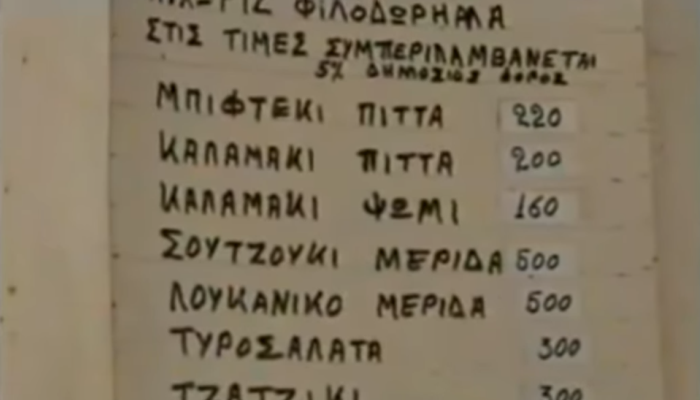 ΧΩΡΙΣ ΦΙΛΟΔΩΡΗΜΑ
ΣΤΙΣ ΤΙΜΕΣ ΣΥΜΠΕΡΙΛΑΜΒΑΝΕΤΑΙ
5% ΔΗΜΟΣΙΟΣ ΦΟΡΟΣ
ΜΠΙΦΤΕΚΙ ΠΙΤΤΑ 220
ΚΑΛΑΜΑΚΙ ΠΙΤΤΑ 200
ΚΑΛΑΜΑΚΙ ΨΩΜΙ 160
ΣΟΥΤΖΟΥΚΙ ΜΕΡΙΔΑ 500
ΛΟΥΚΑΝΙΚΟ ΜΕΡΙΔΑ 500
ΤΥΡΟΣΑΛΑΤΑ 300
ΤΖΑΤΖΙΚΙ 300